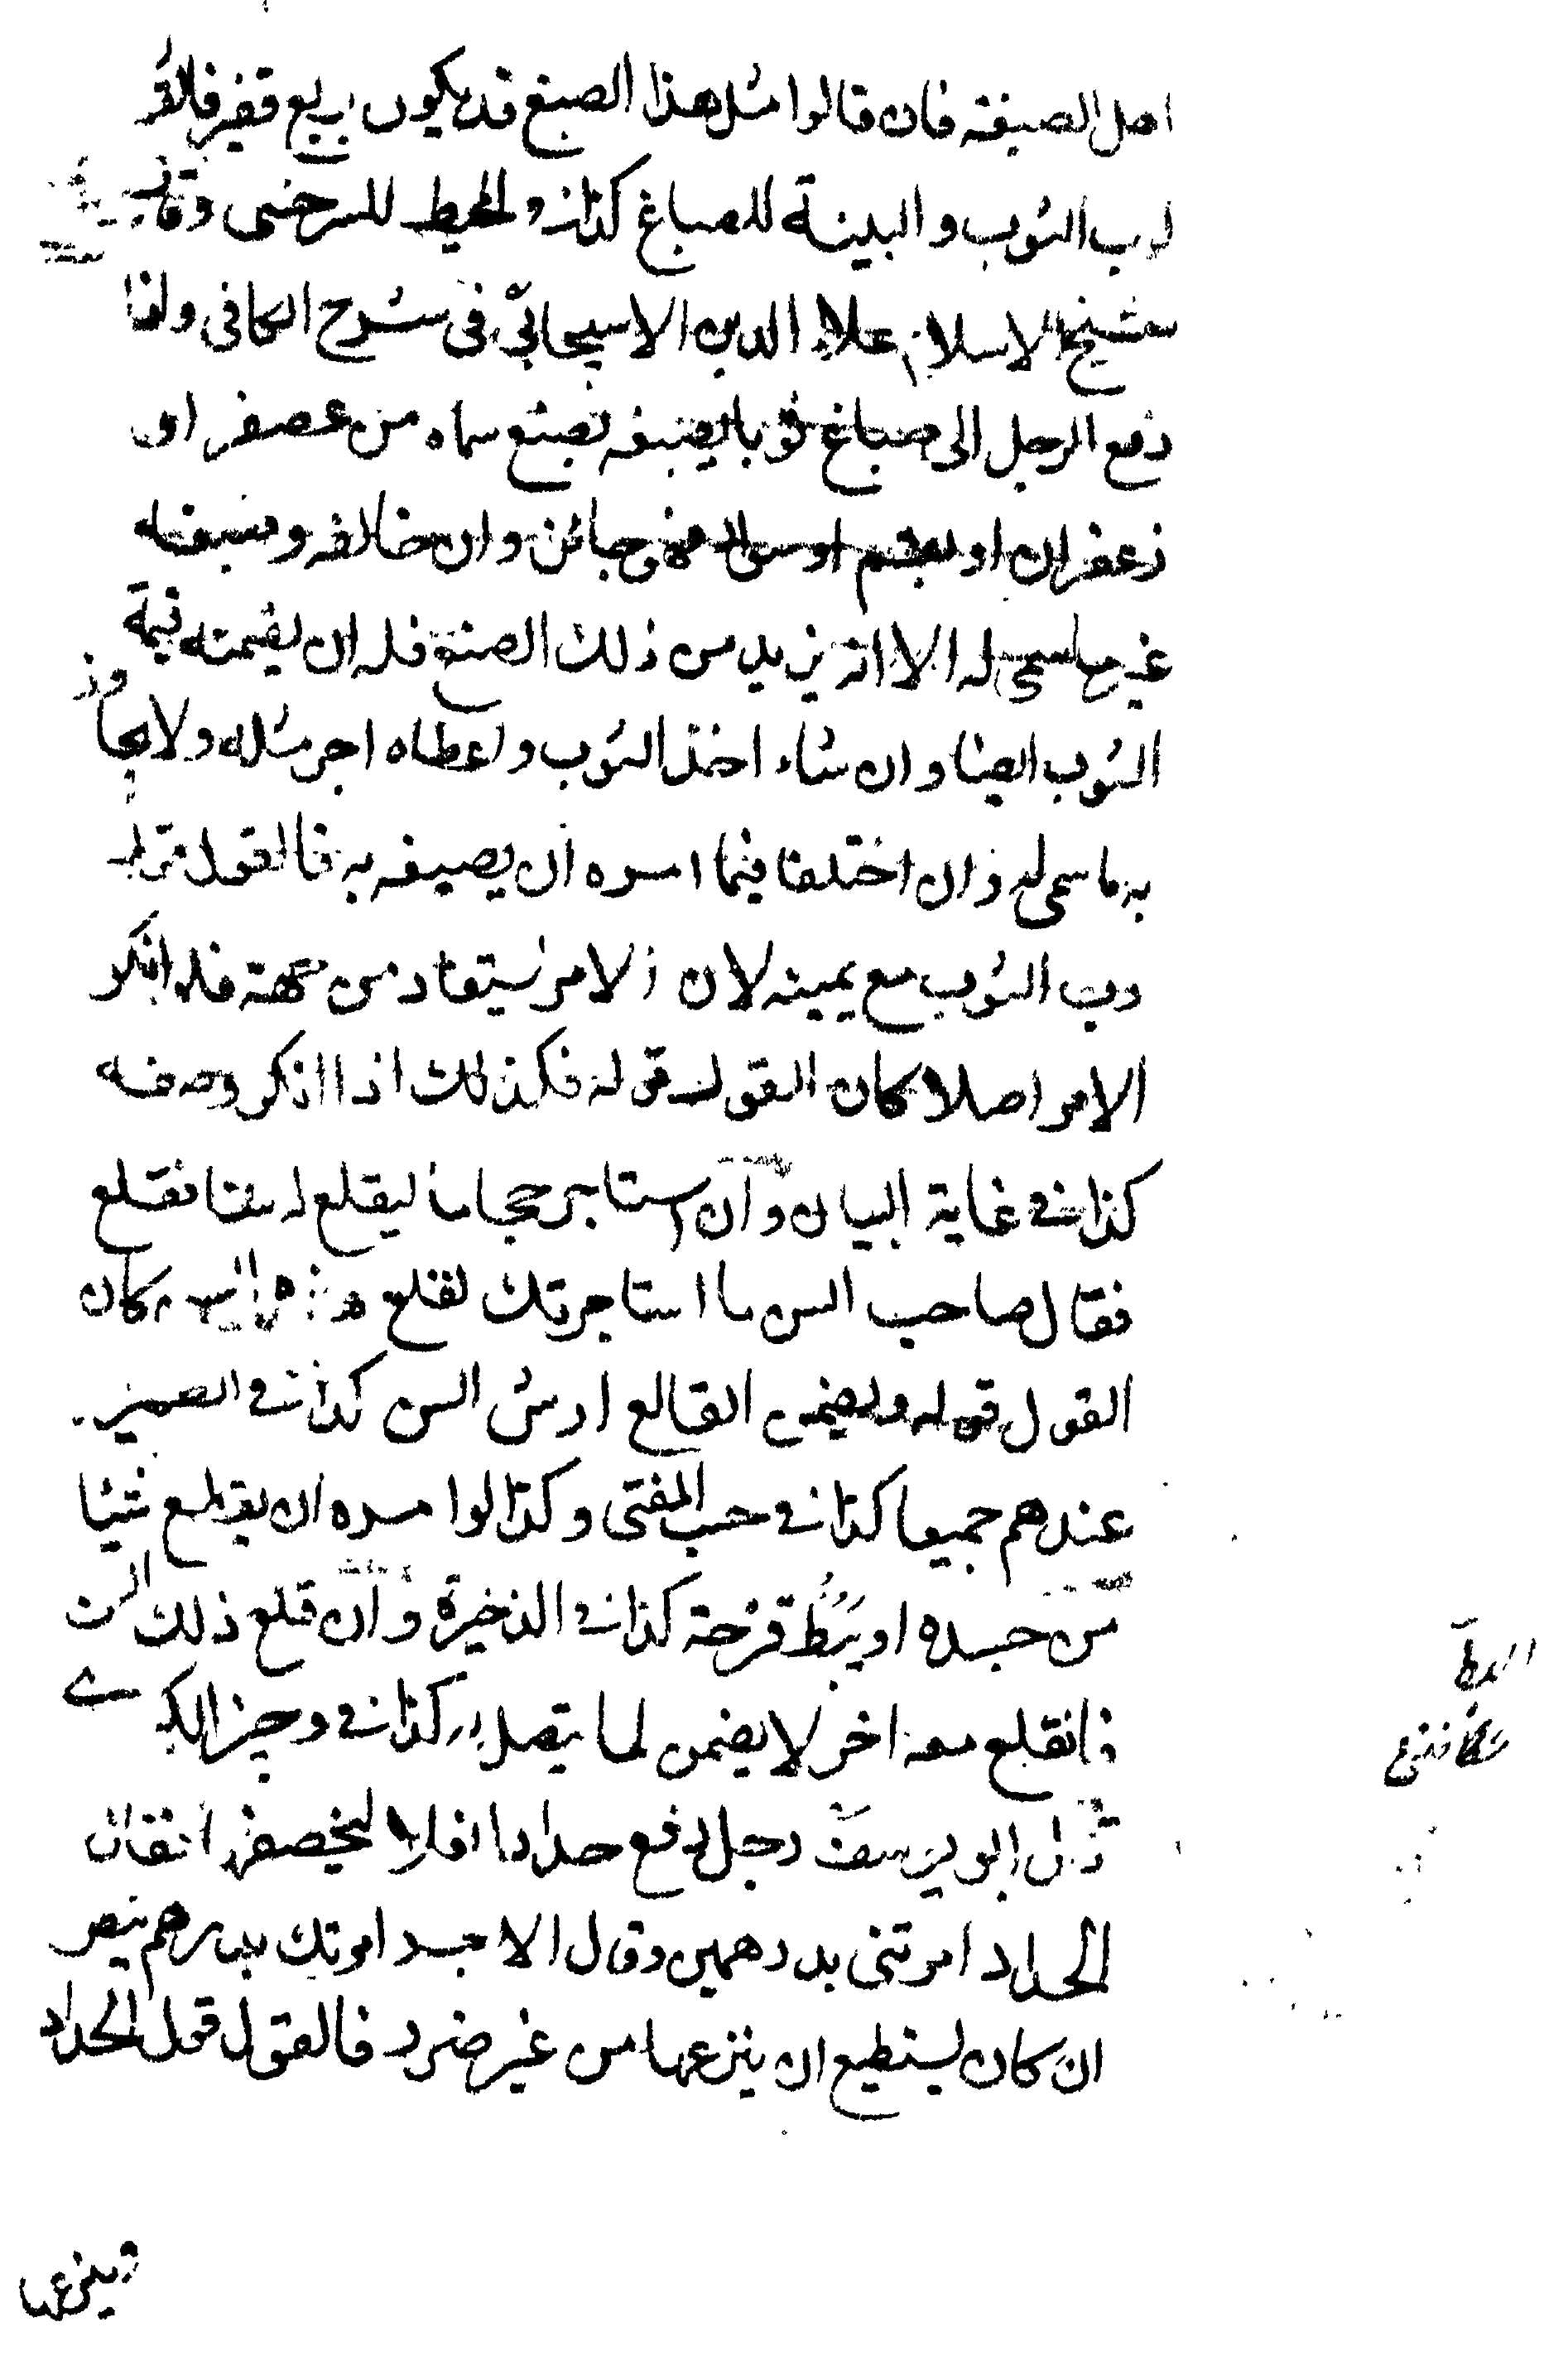 اهل الصبغة فان قالوا مثل هذا الصبغ قد يكون بربع قفيز فالقول
لرب الثوب والبينة للصباغ كذا في المحيط للسرخسى وقال
شيخ الاسلام علاء الدين الاسبيجابي في شرح الكافى واذا
دفع الرجل الى صباغ ثوبا ليصبغه بصبغ سماه من عصفر او
زعفران او بقم او سواد فهو جائز وان خالفه وصبغه
غير ما سمى له الا انه يزيد من ذلك الصبغ فله ان يضمنه قيمة
الثوب ابيضا وان شاء اخذ الثوب واعطاه اجر مثله ولا يجاوز
به ما سمى له وان اختلفا فيما امره ان يصبغه به فالقول قول
رب الثوب مع يمينه لان الامر يستفاد من جهته فلو انكر
الامر اصلا كان القول قوله فكذلك اذا انكر وصفه
كذا في غاية البيان وان استاجر حجاما ليقلع له سنا فقلع
فقال صاحب السن ما استاجرتك لقلع هذا السن كان
القول قوله ويضمن القالع ارش السن كذا في
عندهم جميعا كذا في حسب المفتى وكذا لو امره ان يقلع شيئا
من جسده او يبط قرحة كذا في الذخيرة وان قلع ذلك السن
فانقلع معه اخر لا يضمن لما يتصل به كذا في وجيز الكردري
قال ابو يوسف رجل دفع حدادا نعلا ليخصف فقال
الحداد امرتنى بدرهمين وقال الاجر امرتك بدرهم ينصر
ان كان يستطيع ان ينزعها من غير ضرر فالقول قول الحداد
وينزعها